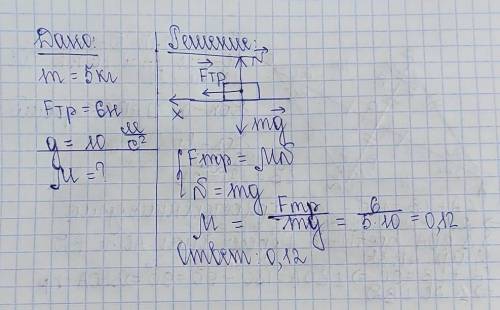 Дано:
m = 5кг
Fтр = 6н
g = 10 м/с²
μ = ?
Решение:
N
Fтр
x
mg
Fтр = μN
N = mg
μ = Fтр/mg = 6/5·10 = 0,12
Ответ: 0,12